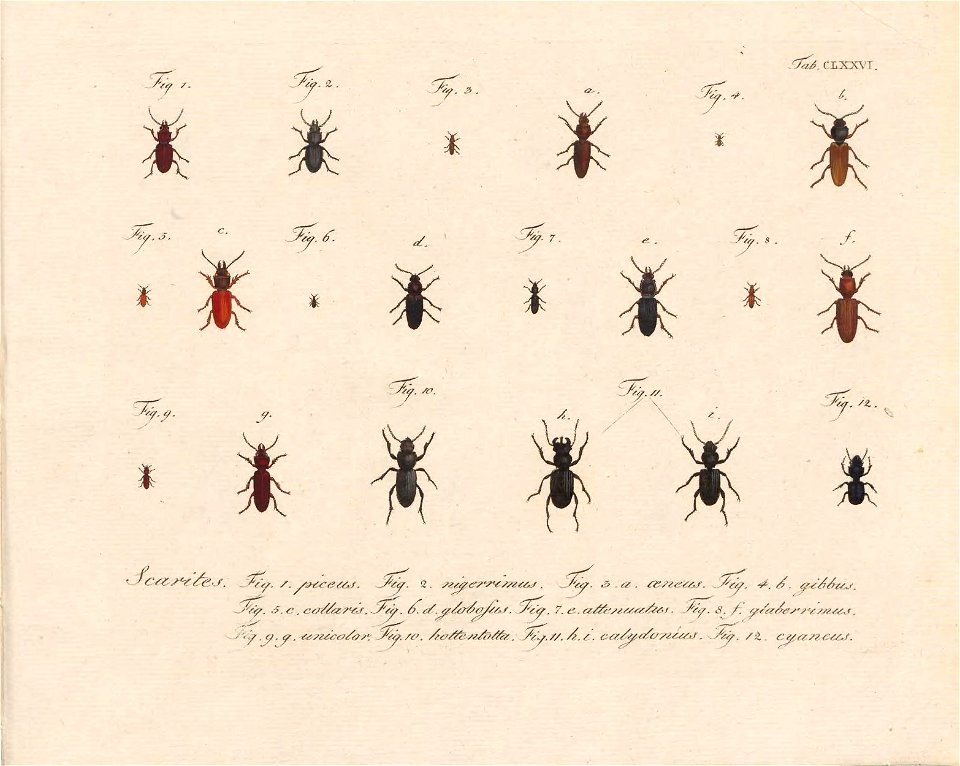 Tab. CLXXVI.
Fig 1. Fig. 2. Fig. 3. a. Fig. 4. b.
Fig. 5. c. Fig. 6. d. Fig. 7. e. Fig. 8. f.
Fig. 9. g. Fig. 10. h. Fig. 11. i. Fig. 12.
Scarites. Fig. 1. piceus. Fig. 2. nigerrimus. Fig. 3. a. æneus. Fig. 4. b. gibbus.
Fig. 5. c. collaris. Fig. 6. d. globosus. Fig. 7. e. attenuatus. Fig. 8. f. glaberrimus.
Fig. 9. g. unicolor. Fig. 10. hottentotta. Fig. 11. h. i. calydonius. Fig. 12. cyaneus.